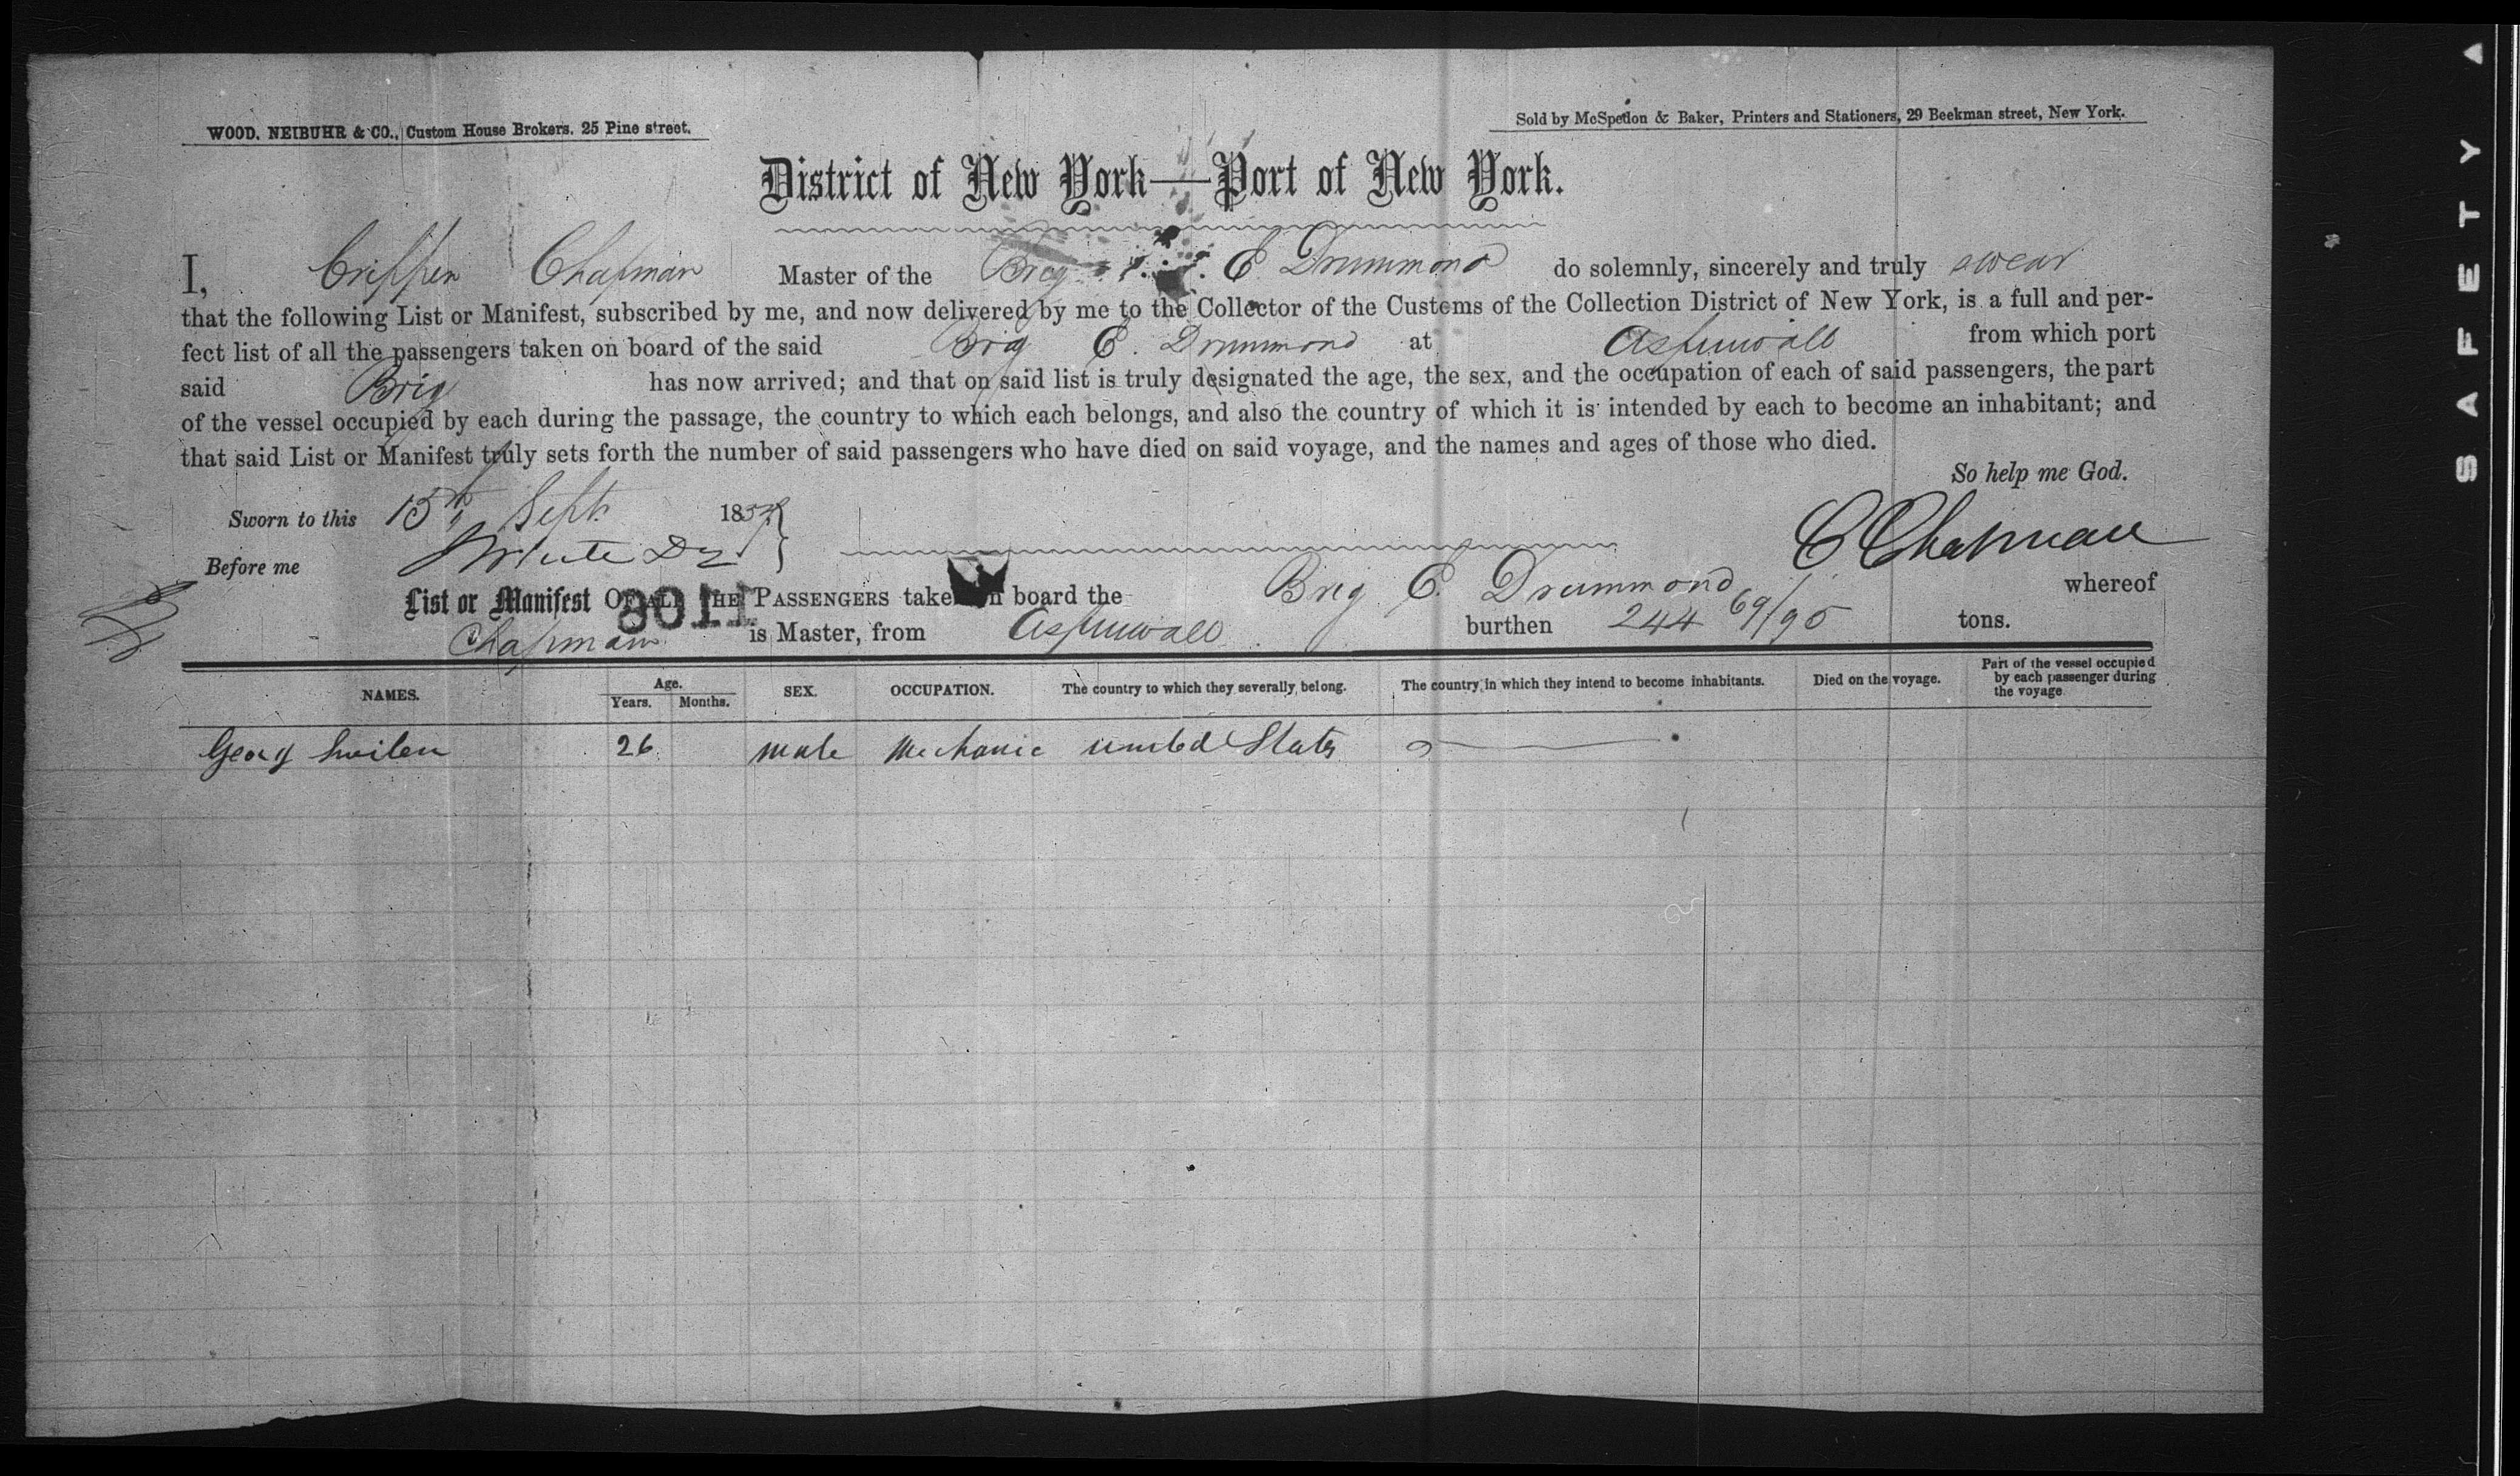 WOOD. NEIBUHR & CO., Custom House Brokers. 25 Pine street.
Sold by McSpedon & Baker, Printers and Stationers, 29 Beekman street, New York.
District of New York—Port of New York.
I, Crippen Chapman Master of the Brig E Drummond do solemnly, sincerely and truly swear
that the following List or Manifest, subscribed by me, and now delivered by me to the Collector of the Customs of the Collection District of New York, is a full and per-
fect list of all the passengers taken on board of the said Brig E. Drummond at Aspinwall from which port
said Brig has now arrived; and that on said list is truly designated the age, the sex, and the occupation of each of said passengers, the part
of the vessel occupied by each during the passage, the country to which each belongs, and also the country of which it is intended by each to become an inhabitant; and
that said List or Manifest truly sets forth the number of said passengers who have died on said voyage, and the names and ages of those who died.
So help me God.
Sworn to this 15th Sept. 185
C Chapman
Before me
List or Manifest OF ALL THE PASSENGERS taken on board the Brig E. Drummond whereof
1108
Chapman is Master, from Aspinwall burthen 244 69/95 tons.
NAMES. Age. Years. Months. SEX. OCCUPATION. The country to which they severally belong. The country in which they intend to become inhabitants. Died on the voyage. Part of the vessel occupied by each passenger during the voyage
Georg 26 male Mechanic united States
SAFETY